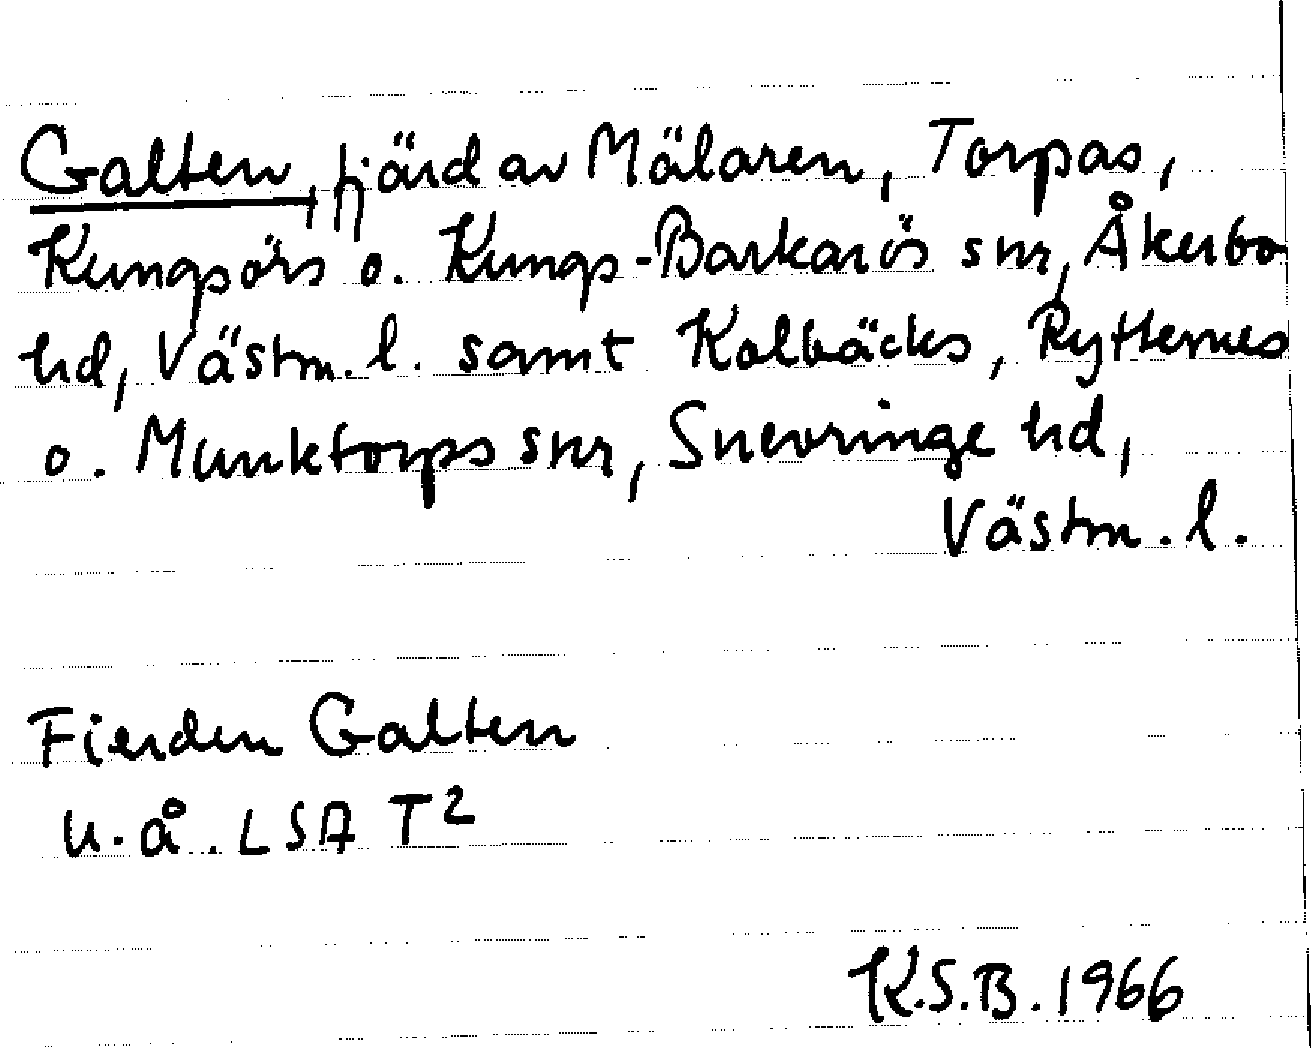 Galten, fjärd av Mälaren, Torpas,
Kungsörs o. Kungs-Barkarös snr, Åkerbo
hd, Västm. l. samt Kolbäcks, Rytternes
o. Munktorps snr, Snevringe hd,
Västm. l.
Fierden Galten
u. å. LSA T²
K.S.B. 1966